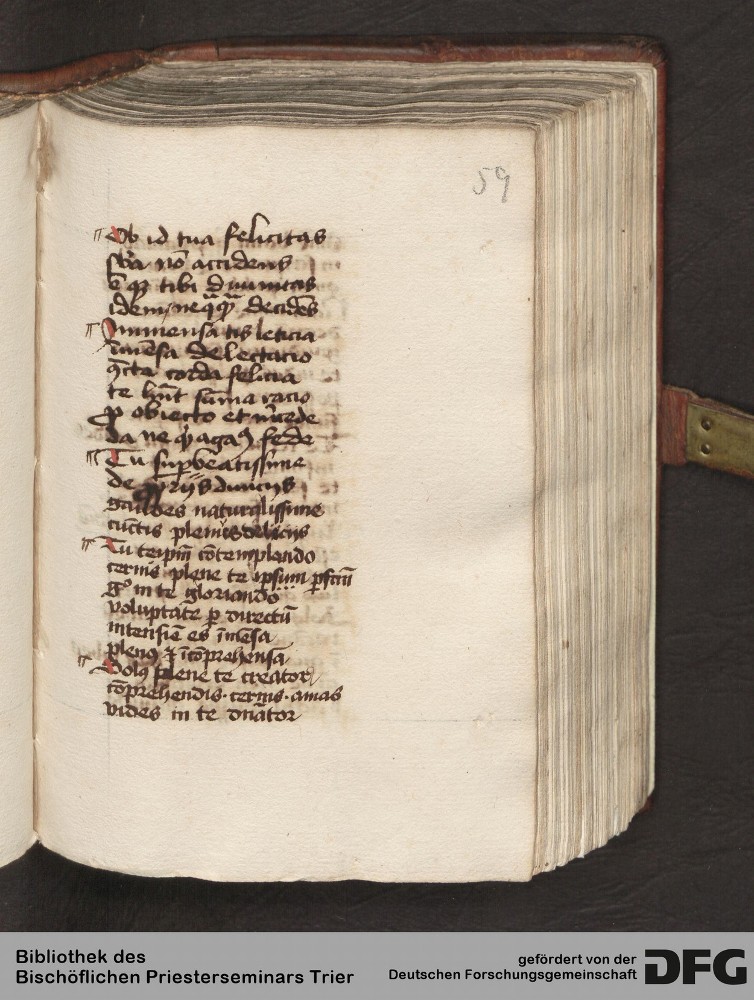 59
Ob id tua felicitas
nō accidens
ē qꝫ tibi diuinitas
idem neq̄q̄ꝫ decidēs
Inmensa tis leticia
īmēsa delectacio
cūcta corda felicia
te hn̄t sūma racio
ꝓ obiecto et m̄cede
da ne fede
Tu suꝑbeatissime
de diuicijs
gaudes naturalissime
cūctis plenis delicijs
Tu teipm̄ cōtemplando
cernis plene te ipsum ꝑfcm̄
gͦ in te gloriando
voluptate ꝑ directū
intensiue es īmēsa
plenꝰ ⁊ īcōprehensa
Solꝰ plene te creator
cōprehendis · cernis · amas
vides in te dn̄ator
Bibliothek des
Bischöflichen Priesterseminars Trier
gefördert von der
Deutschen Forschungsgemeinschaft
DFG